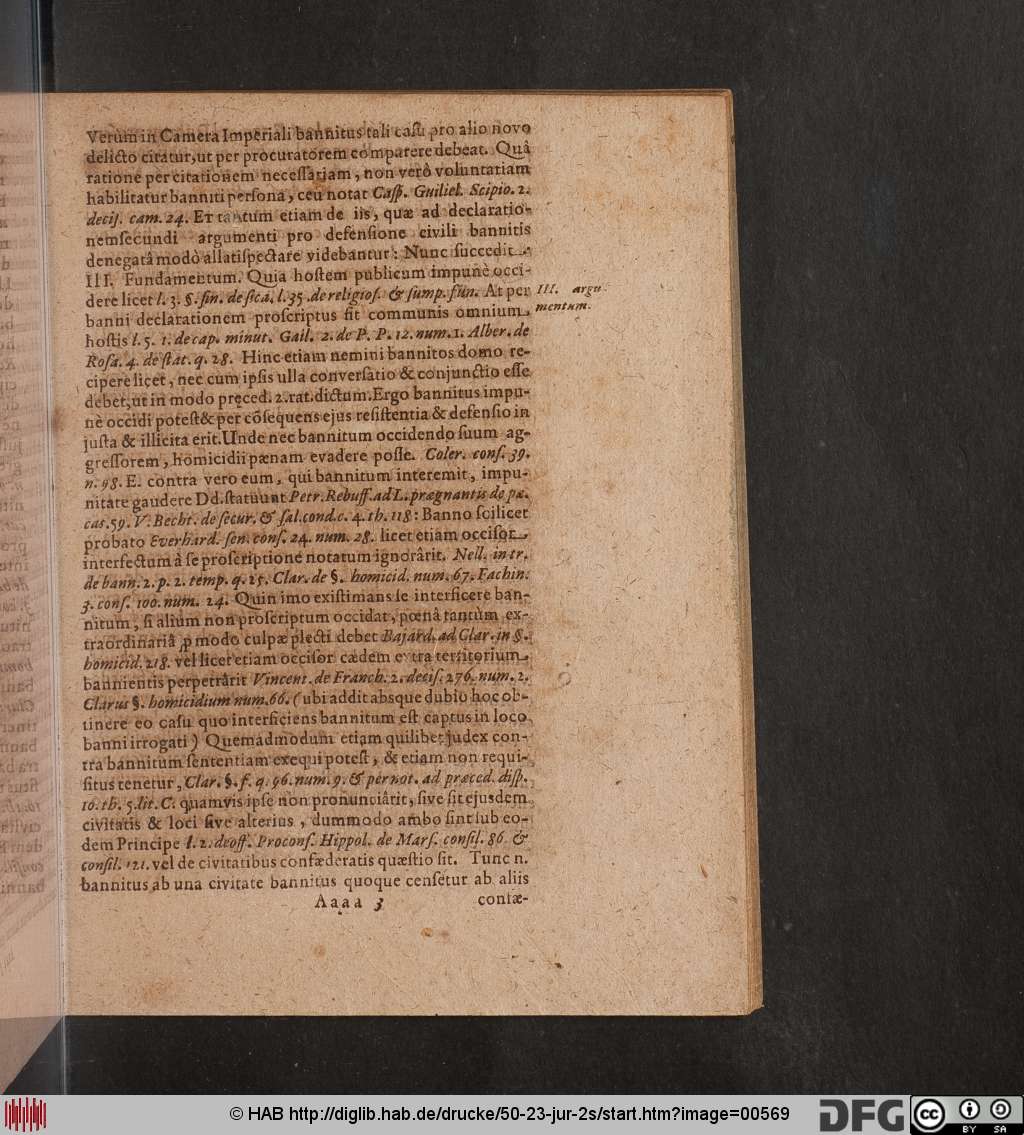 Verùm in Camera Imperiali bannitus tali caſu pro alio novo
delicto citatur, ut per procuratorem comparere debeat. Quâ
ratione per citationem neceſſariam, non verò voluntariam
habilitatur banniti perſona, ceu notat Caſp. Guiliel. Scipio. 2.
deciſ. cam. 24. Et tantum etiam de iis, quæ ad declaratio-
nem ſecundi argumenti pro defenſione civili bannitis
denegatâ modò allati ſpectare videbantur: Nunc ſuccedit
III. Fundamentum. Quia hoſtem publicum impunè occi-
dere licet l. 3. §. fin. de ſica. l. 35. de religioſ. & ſump. fun. At per
banni declarationem proſcriptus fit communis omnium
hoſtis l. 5. 1. de cap. minut. Gail. 2. de P. P. 12. num. 1. Alber. de
Roſa. 4. de ſtat. q. 28. Hinc etiam nemini bannitos domo re-
cipere licet, nec cum ipſis ulla converſatio & conjunctio eſſe
debet, ut in modo pręced. 2. rat. dictum. Ergo bannitus impu-
nè occidi poteſt & per cõſequens ejus reſiſtentia & defenſio in
juſta & illicita erit. Unde nec bannitum occidendo ſuum ag-
greſſorem, homicidii pænam evadere poſſe. Coler. conſ. 39.
n. 98. E. contra vero eum, qui bannitum interemit, impu-
nitate gaudere Dd. ſtatuunt Petr. Rebuff. ad L. prægnantis de pæ.
cas. 59. V. Becht. de ſecur. & ſal. cond. c. 4. th. 118: Banno ſcilicet
probato Everhard. ſen. conſ. 24. num. 28. licet etiam occiſor
interfectum à ſe proſcriptione notatum ignorârit. Nell. in tr.
de bann. 2. p. 2. temp. q. 25. Clar. de §. homicid. num. 67. Fachin.
3. conſ. 100. num. 24. Quin imo exiſtimans ſe interficere ban-
nitum, ſi alium non proſcriptum occidat, pœnâ tantùm ex-
traordinariâ ꝓ modo culpæ plecti debet Bajard. ad Clar. in §.
homicid. 218. vel licet etiam occiſor cædem extra territorium
bannientis perpetrârit Vincent. de Franch. 2. deciſ. 276. num. 2.
Clarus §. homicidium num. 66. (ubi addit absque dubio hoc ob-
tinere eo caſu quo interficiens bannitum eſt captus in loco
banni irrogati) Quemadmodum etiam quilibet judex con-
tra bannitum ſententiam exequi poteſt, & etiam non requi-
ſitus tenetur, Clar. §. f. q. 96. num. 9. & per not. ad præced. diſp.
16. th. 5. lit. C. quamvis ipſe non pronunciârit, ſive ſit ejusdem
civitatis & loci ſive alterius, dummodo ambo ſint ſub eo-
dem Principe l. 2. de off. Proconſ. Hippol. de Marſ. conſil. 86. &
conſil. 121. vel de civitatibus confæderatis quæſtio ſit. Tunc n.
bannitus ab una civitate bannitus quoque cenſetur ab aliis
Aaaa 3 confæ-
III. argu-
mentum.
© HAB http://diglib.hab.de/drucke/50-23-jur-2s/start.htm?image=00569
DFG
cc BY SA